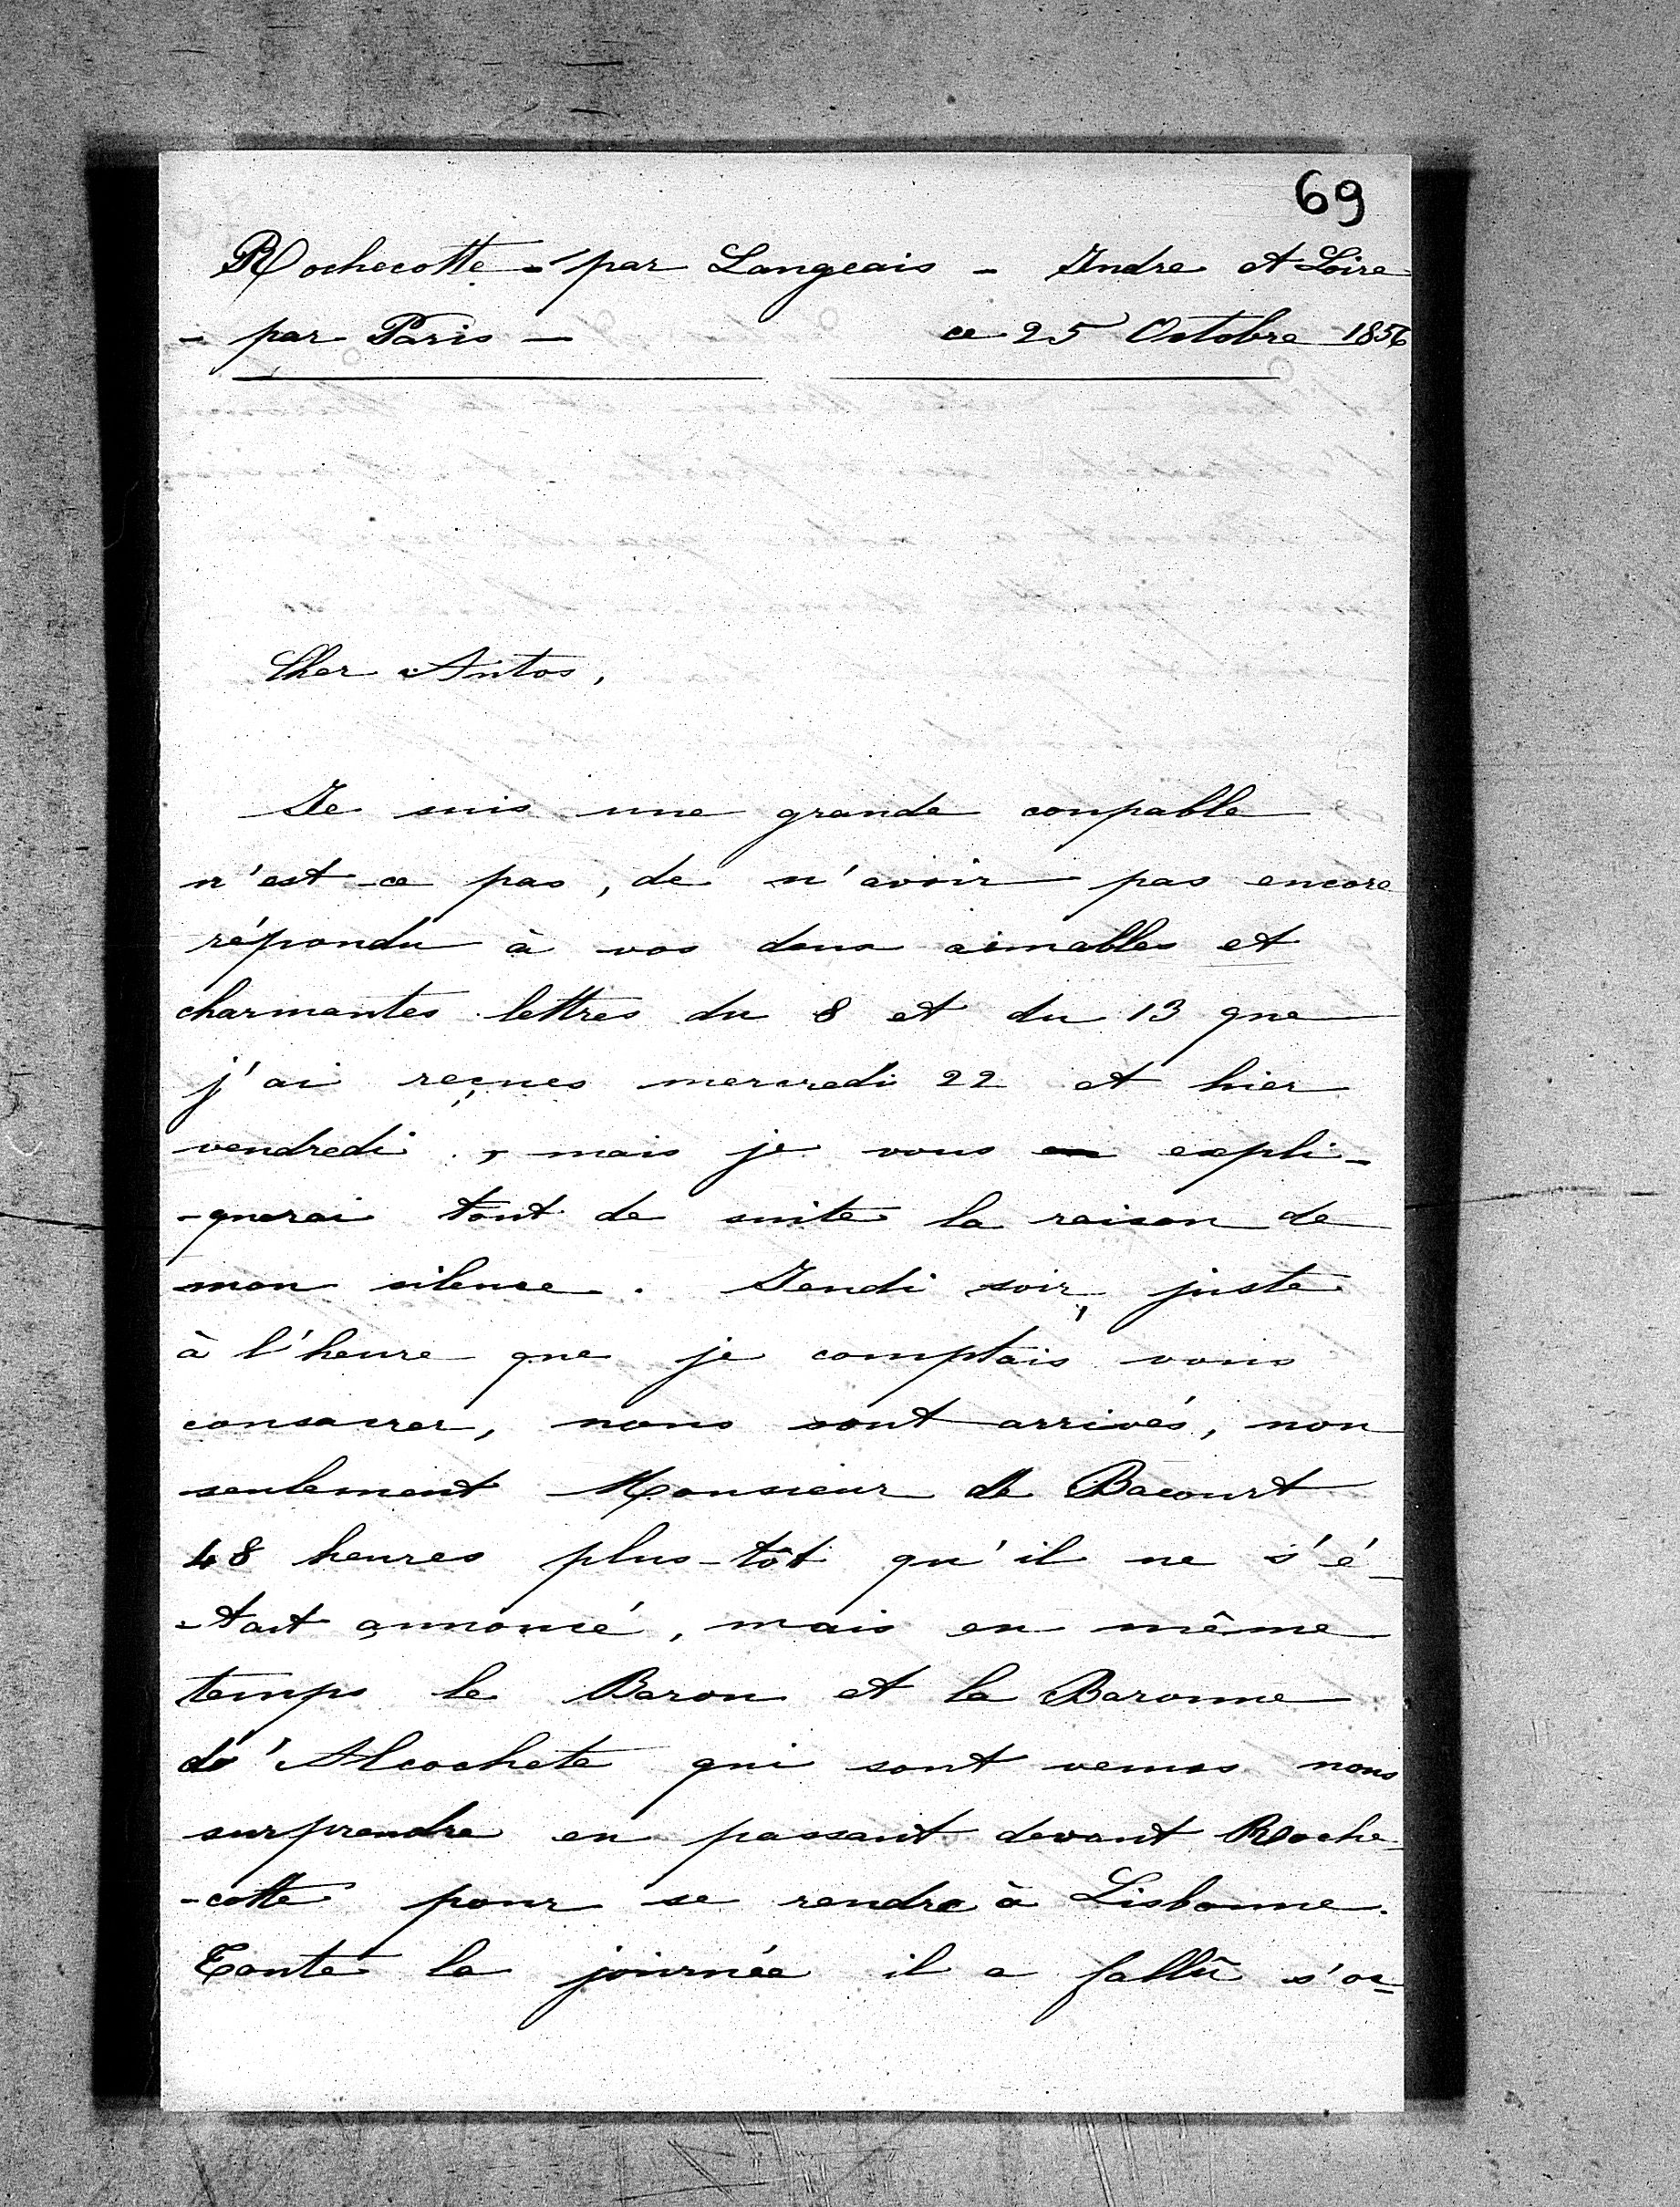 69
Rochecotte - par Langeais - Indre et Loire
- par Paris - ce 25 Octobre 1856
Cher Antos,
Je suis une grande coupable
n'est-ce pas, de n'avoir pas encore
répondu à vos deux aimables et
charmantes lettres du 8 et du 13 que
j'ai reçues mercredi 22 et hier
vendredi, mais je vous en expli-
-querai tout de suite la raison de
mon silence. Jeudi soir, juste
à l'heure que je comptais vous
consacrer, nous sont arrivés, non
seulement Monsieur de Bacourt
48 heures plus-tôt qu'il ne s'é-
-tait annoncé, mais en même
temps le Baron et la Baronne
d'Alcochete qui sont venus nous
surprendre en passant devant Roche-
-cotte pour se rendre à Lisbonne.
Toute la journée il a fallû s'oc-